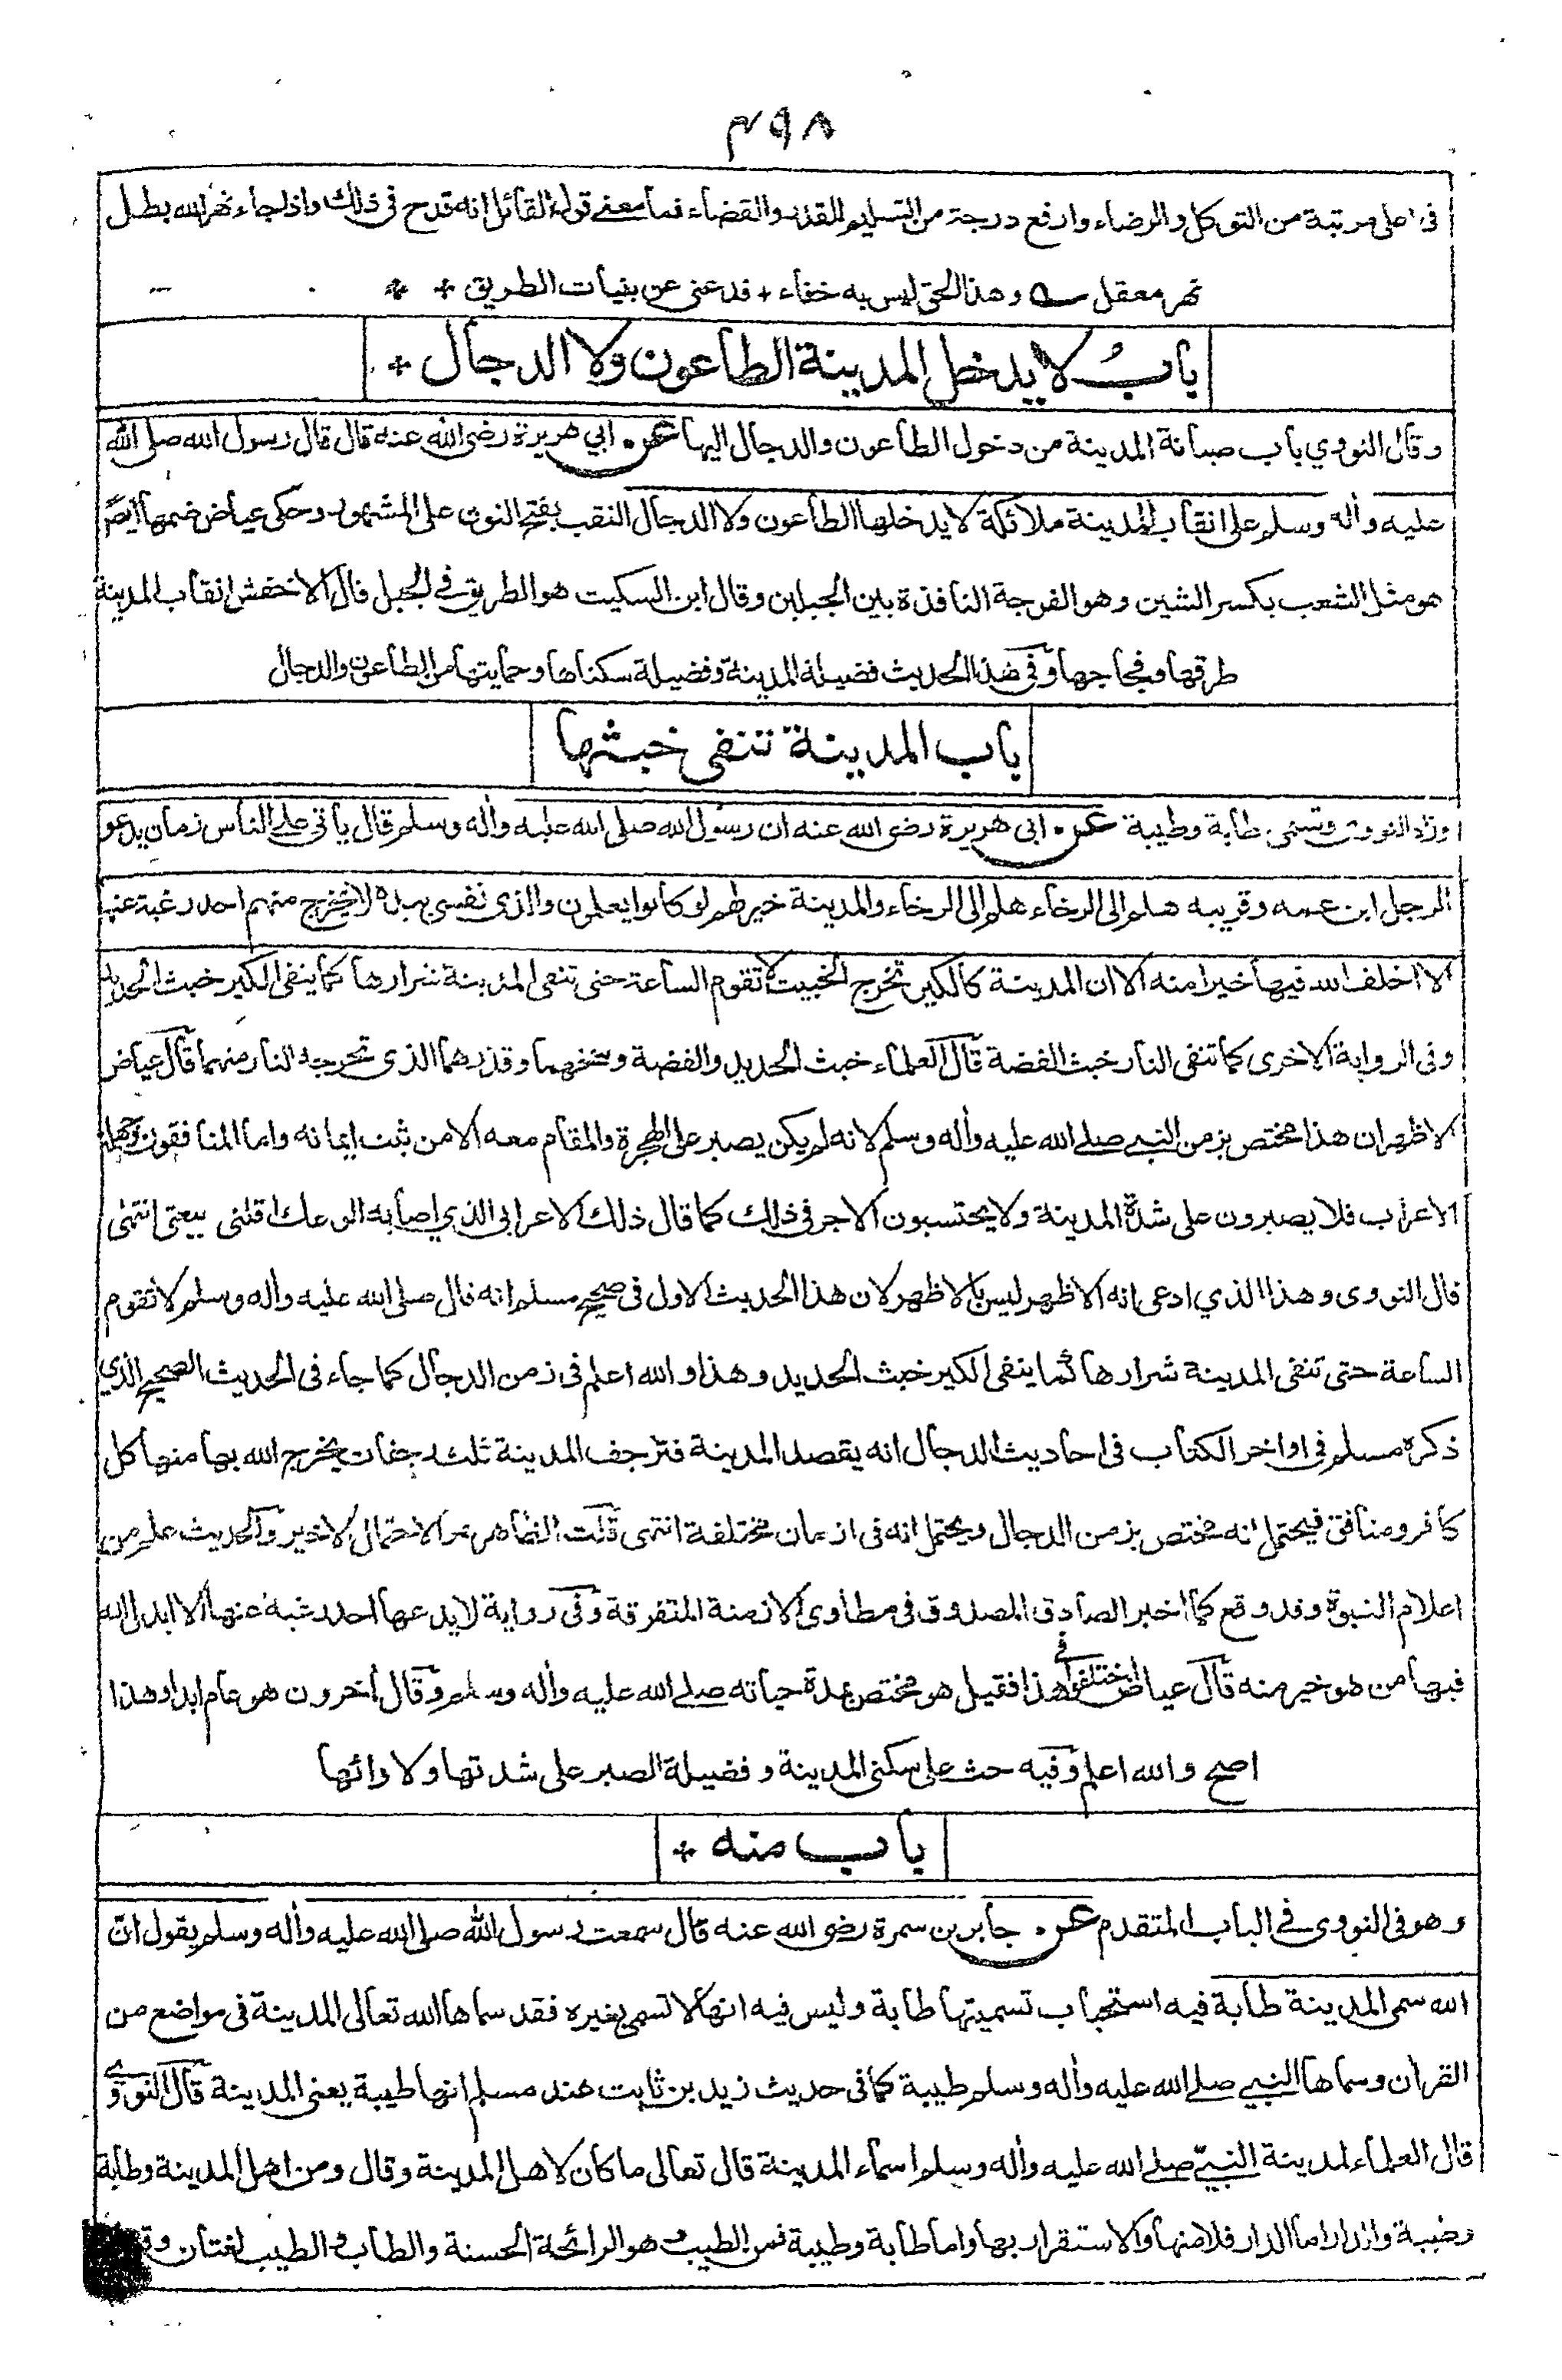 ٤٩٨
فى اعلى مرتبة من التوكل والرضاء وارفع درجة من التسليم للقدر والقضاء فما معنے قول القائل انه قدح فى ذلك واذا جاء نهر الله بطل
نهر معقل وهذا الحق ليس به خفاء + فدعنى عن بنيات الطريق + +
باب لا يدخل المدينة الطاعون ولا الدجال +
وقال النووي باب صيانة المدينة من دخول الطاعون والدجال اليها عن ابي هريرة رضى الله عنه قال قال رسول الله صلى الله
عليه واله وسلم على انقاب المدينة ملائكة لا يدخلها الطاعون ولا الدجال النقب بفتح النون على المشهور وحكى عياض ضمها ايضا
هو مثل الشعب بكسر الشين وهو الفرجة النافذة بين الجبلين وقال ابن السكيت هو الطريق فے الجبل قال الاخفش انقاب المدينة
طرقها وفجاجها وفى هذا الحديث فضيلة المدينة وفضيلة سكناها وحمايتها من الطاعون والدجال
باب المدينة تنفى خبثها
وزاد النووى وتسمى طابة وطيبة عن ابى هريرة رضى الله عنه ان رسول الله صلى الله عليه واله وسلم قال ياتى علے الناس زمان يدعو
الرجل ابن عمه وقريبه هلم الى الرخاء هلم الى الرخاء والمدينة خير لهم لو كانوا يعلمون والذى نفسى بيده لا يخرج منهم احد رغبة عنها
الا اخلف الله فيها خيرا منه الا ان المدينة كالكير تخرج الخبيث لا تقوم الساعة حتى تنفى المدينة شرارها كما ينفى الكير خبث الحديد
وفى الرواية الاخرى كما تنفى النار خبث الفضة قال العلماء خبث الحديد والفضة وسخهما وقذرهما الذى تخرجه النار منهما قال عياض
الاظهر ان هذا مختص بزمن النبے صلے الله عليه واله وسلم لانه لم يكن يصبر على الهجرة والمقام معه الا من ثبت ايمانه واما المنافقون وجهلة
الاعراب فلا يصبرون على شدة المدينة ولا يحتسبون الاجر فى ذلك كما قال ذلك الاعرابى الذي اصابه الوعك اقلنى بيعتى انتهى
قال النووى وهذا الذي ادعى انه الاظهر ليس بالاظهر لان هذا الحديث الاول فى صحيح مسلم انه قال صلى الله عليه واله وسلم لا تقوم
الساعة حتى تنفى المدينة شرارها كما ينفى الكير خبث الحديد وهذا والله اعلم فى زمن الدجال كما جاء فى الحديث الصحيح الذي
ذكره مسلم فى اواخر الكتاب فى احاديث الدجال انه يقصد المدينة فترجف المدينة ثلث رجفات يخرج الله بها منها كل
كافر ومنافق فيحتمل انه مختص بزمن الدجال ويحتمل انه فى ازمان مختلفة انتهى قلت الظاهر هو الاحتمال الاخير والحديث علم من
اعلام النبوة وقد وقع كما اخبر الصادق المصدوق فى مطاوى الازمنة المتفرقة وفى رواية لا يدعها احد رغبة عنها الا ابدل الله
فيها من هو خير منه قال عياض اختلفوا فى هذا فقيل هو مختص بمدة حياته صلے الله عليه واله وسلم وقال اخرون هو عام ابدا وهذا
اصح والله اعلم وفيه حث على سكنى المدينة وفضيلة الصبر على شدتها ولاوائها
باب منه +
وهو فى النووى فے الباب المتقدم عن جابر بن سمرة رضى الله عنه قال سمعت رسول الله صلى الله عليه واله وسلم يقول ان
الله سمى المدينة طابة فيه استحباب تسميتها طابة وليس فيه انها لا تسمى بغيره فقد سماها الله تعالى المدينة فى مواضع من
القران وسماها النبے صلے الله عليه واله وسلم طيبة كما فى حديث زيد بن ثابت عند مسلم انها طيبة يعنى المدينة قال النووے و
قال العلماء لمدينة النبےّ صلے الله عليه واله وسلم اسماء المدينة قال تعالى ما كان لاهل المدينة وقال ومن اهل المدينة وطابة
وطيبة والدار اما الدار فلامنها والاستقرار بها واما طابة وطيبة فمن الطيب وهو الرائحة الحسنة والطاب والطيب لغتان